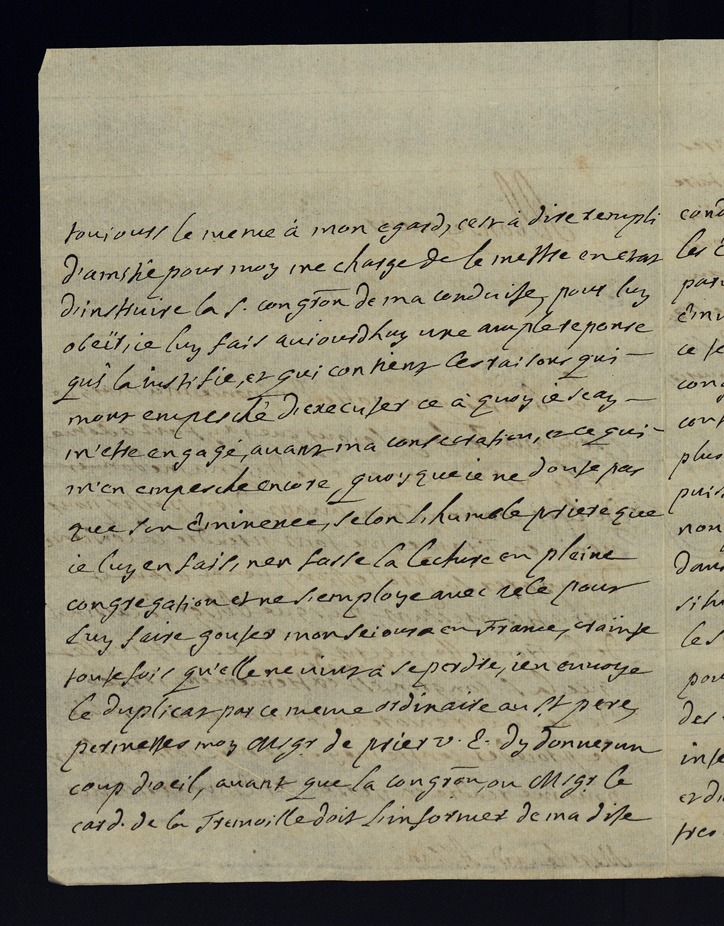 toujours le meme à mon egard, cest à dire rempli
d'amitié pour moy me charge de le mettre en etat
d'instruire la s. congrõn de ma conduitte, pour luy
obeït, ie luy fais auiourdhuy une ample reponse
qui la iustifie, et qui contient les raisons qui –
mont empesché d'executer ce à quoy ie scay –
m'etre engagé, auant ma consecration, et ce qui –
m'en empesche encore, quoyque ie ne doute pas
que son Eminence, selon l'humble priere que
ie luy en fais, n'en fasse la lecture en pleine
congregation et ne s'employe auec zele pour
luy faire gouter mon seiour en France, crainte
toutefois qu'elle ne vint à se perdre, i'en envoye
le duplicat par ce meme ordinaire au St pere,
permettes moy Msgr de prier v. E. dy donner un
coup d'oeil, auant que la congrõn, ou Msgr le
card. de la Tremoille doit l'informer de ma ditte
cond
les
par
Emin
ce se
cong
cont
plus
puis
non
dans
situ
le s
pou
des
inse
et di
tres